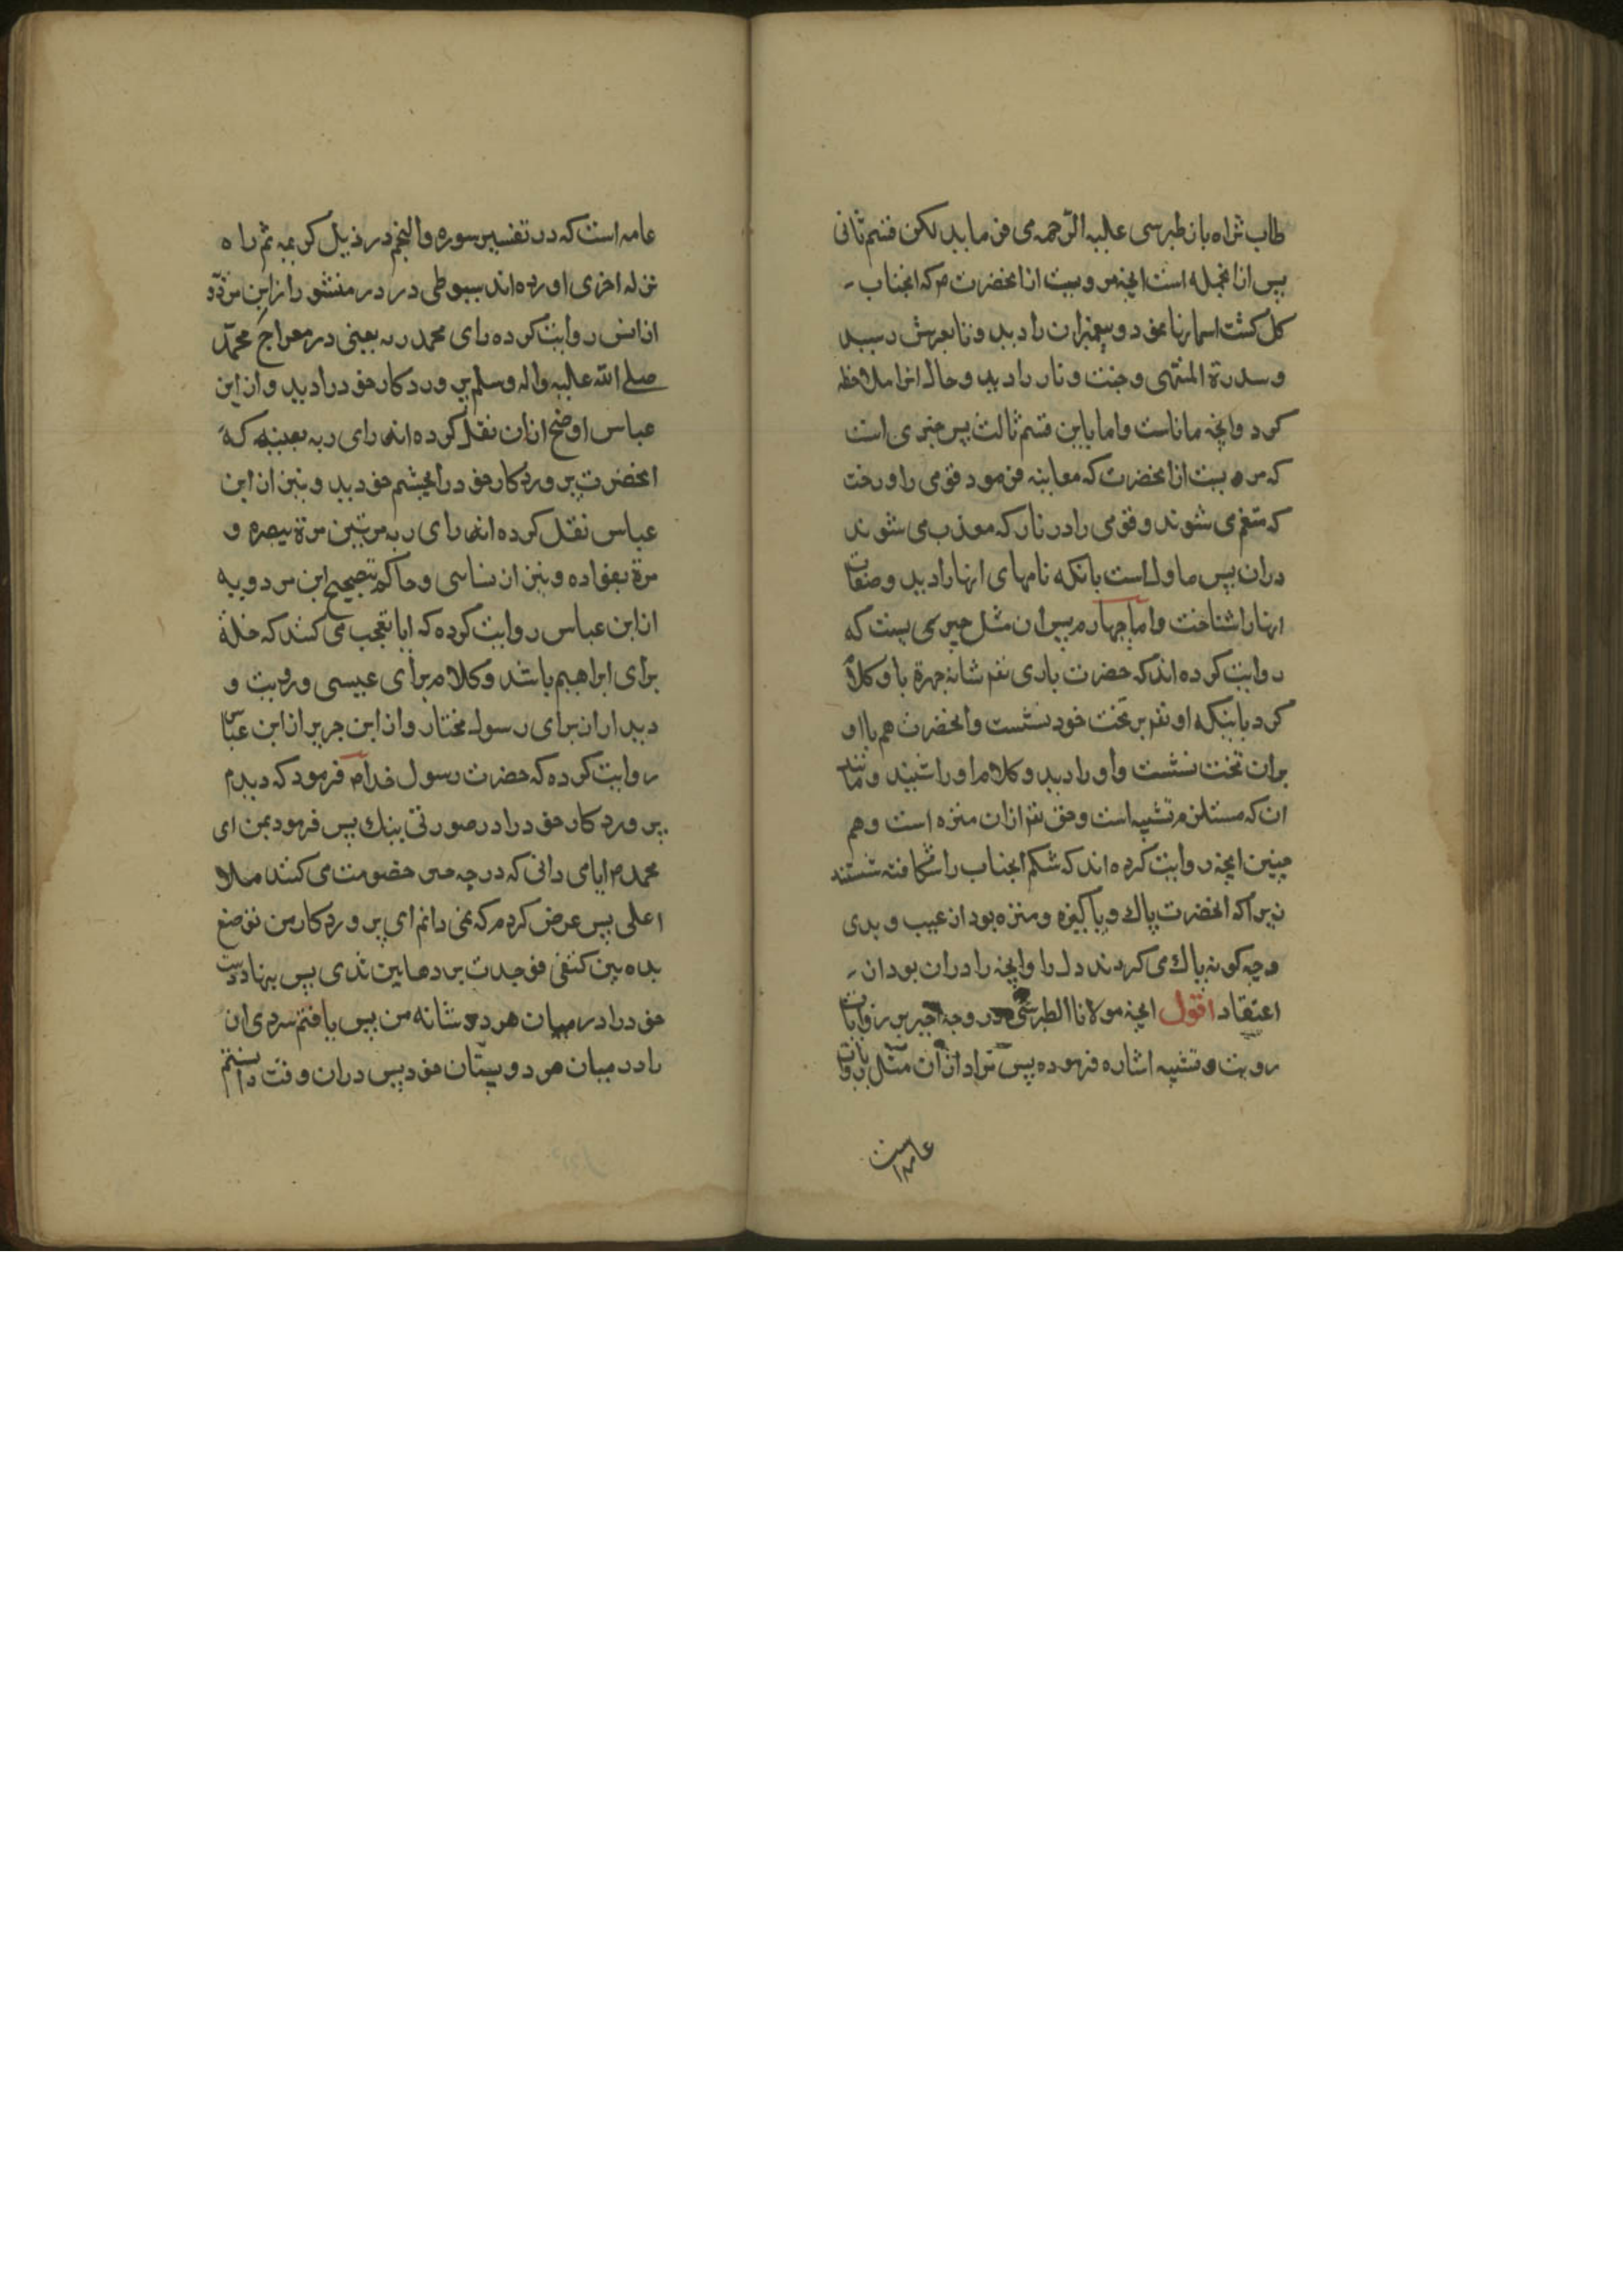 طاب ثراه باز طبرسی علیه الرحمه می فرماید لکن قسم ثانی
پس ازانجمله است انچه مرویست ازانحضرت م که انجناب
کل کشت اسمانها نمود و پیغمبران را دید و تا بعرش رسید
و سدرة المنتهی و جنت و نار را دید و حال انرا ملاحظه
کرد وانچه ماناست واما باین قسم ثالث پس خبری است
که مرویست ازانحضرت که معاینه فرمود قومی را در جنت
که متنعم می شوند و قومی را در نار که معذب می شوند
دران پس ماول است بانکه نامهای انها را دید و صفات
انها را شناخت واما چهارم پس ان مثل چیزی یست که
روایت کرده اند که حضرت باری تعم شانه جهرة با و کلام
کرد باینکه او تعم بر تخت خود نشست وانحضرت هم با او
بران تخت نشست واو را دید و کلام او را شنید و مانند
ان که مستلزم تشبیه است و حق تعم ازان منزه است و هم
چنین انچه روایت کرده اند که شکم انجناب را شکافته شستند
زیراکه انحضرت پاک و پاکیزه و منزه بود از عیب و بدی
و چه کونه پاک می کردند دل را وانچه را دران بود از
اعتقاد اقول انچه مولانا الطبرسی در وجه اخیر بر روایات
رویت و تشبیه اشاره فرموده پس مراد ازان مثل روایات
عامه است
عامه است که در تفسیر سوره والنجم در ذیل کریمه ثم راه
نزله اخری اورده اند سیوطی در در منثور از ابن مردو
از انس روایت کرده رای محمد ربه یعنی در معراج محمد
صلی الله علیه واله وسلم پروردکار خود را دید واز ابن
عباس اوضح ازان نقل کرده انه رای ربه بعینه که
انحضرت پروردکار خود را بچشم خود دید و نیز از ابن
عباس نقل کرده انه رای ربه مرتین مرة ببصره و
مرة بفواده و نیز از نسائی و حاکم بتصحیح ابن مردویه
از ابن عباس روایت کرده که ایا تعجب می کنند که خلة
برای ابراهیم باشد و کلام برای عیسی و رویت و
دیدار ان برای رسول مختار واز ابن جریر از ابن عباس
روایت کرده که حضرت رسول خدا م فرمود که دیدم
پروردکار خود را در صورتی نیک پس فرمود بمن ای
محمد م ایا می دانی که در چه من خصومت می کنند ملاء
اعلی پس عرض کردم که نمی دانم ای پروردکار من فوضع
یده بین کتفی فوجدت بردها بین ثدی پس بنهاد دست
خود را در میان هر دو شانه من پس یافتم سردی ان
را در میان هر دو پستان خود پس دران وقت دانستم